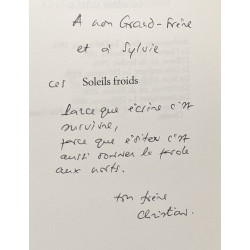 A mon Grand-Frère
et à Sylvie
ces Soleils froids
parce que écrire c'est
survivre,
parce que éditer c'est
aussi donner la parole
aux morts.
ton frère
Christian.